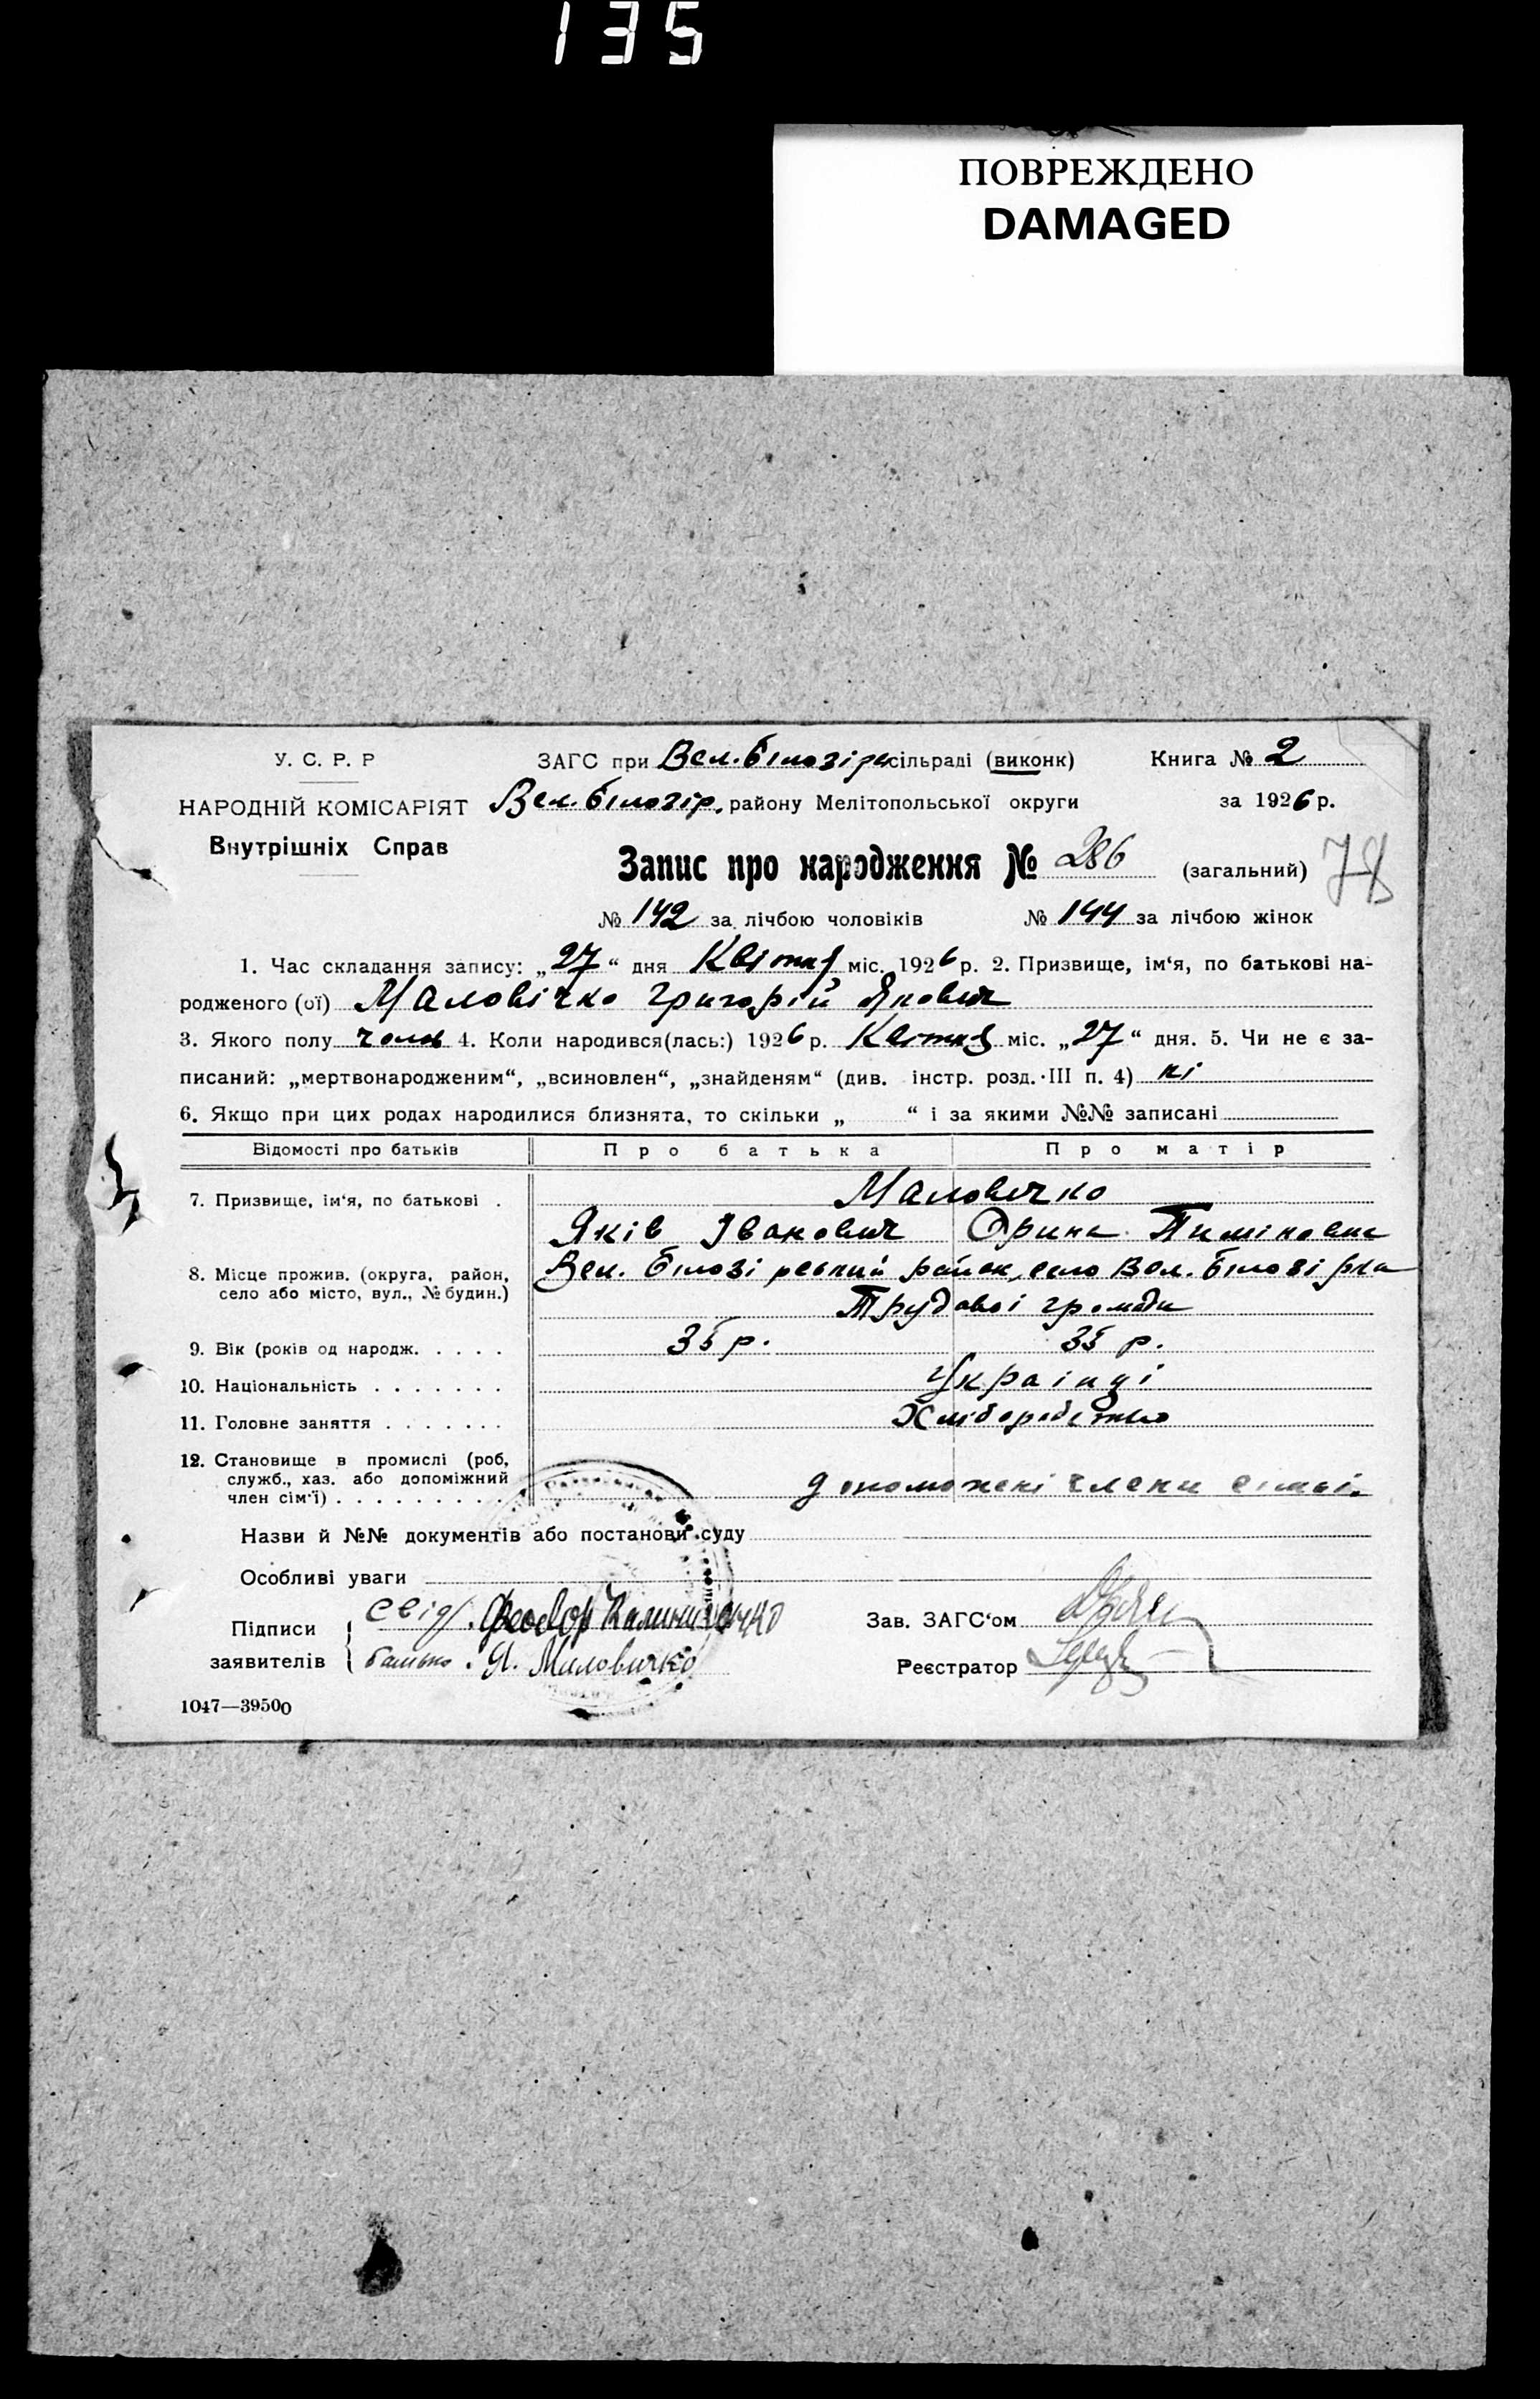 135
ПОВРЕЖДЕНО
DAMAGED
У. С. Р. Р
ЗАГС при Вел. Білозірск сільраді (виконк)
Книга № 2
НАРОДНІЙ КОМІСАРІЯТ
Вел. Білозір. району Мелітопольської округи
за 1926 р.
Внутрішніх Справ
Запис про народження № 286 (загальний)
78
№ 142 за лічбою чоловіків № 144 за лічбою жінок
1. Час складання запису: „27“ дня Квітня міс. 1926 р. 2. Призвище, ім‘я, по батькові на-
родженого (ої) Маловічко Григорій Якович
3. Якого полу чолов 4. Коли народився(лась:) 1926 р. Квітня міс. „27“ дня. 5. Чи не є за-
писаний: „мертвонародженим“, „всиновлен“, „знайденям“ (див. інстр. розд. III п. 4) ні
6. Якщо при цих родах народилися близнята, то скільки „ “ і за якими №№ записані
Відомості про батьків
Про батька
Про матір
7. Призвище, ім‘я, по батькові .
Маловичко
Яків Іванович
Орина Тиміновна
8. Місце прожив. (округа, район,
село або місто, вул., № будин.)
Вел. Білозірський район, село Вел. Білозірка
Трудової громади
9. Вік (років од народж. . . . .
35 р.
35 р.
10. Національність . . . . . . .
Українці
11. Головне заняття . . . . . . .
Хліборобство
12. Становище в промислі (роб,
служб., хаз. або допоміжний
член сім‘ї) . . . . . . . . .
допоможні члени сімьї.
Назви й №№ документів або постанови суду
Особливі уваги
Підписи
заявителів
свід. Феодор Калиниченко
батько. Я. Маловичко
Зав. ЗАГС‘ом
Реєстратор
1047—39500